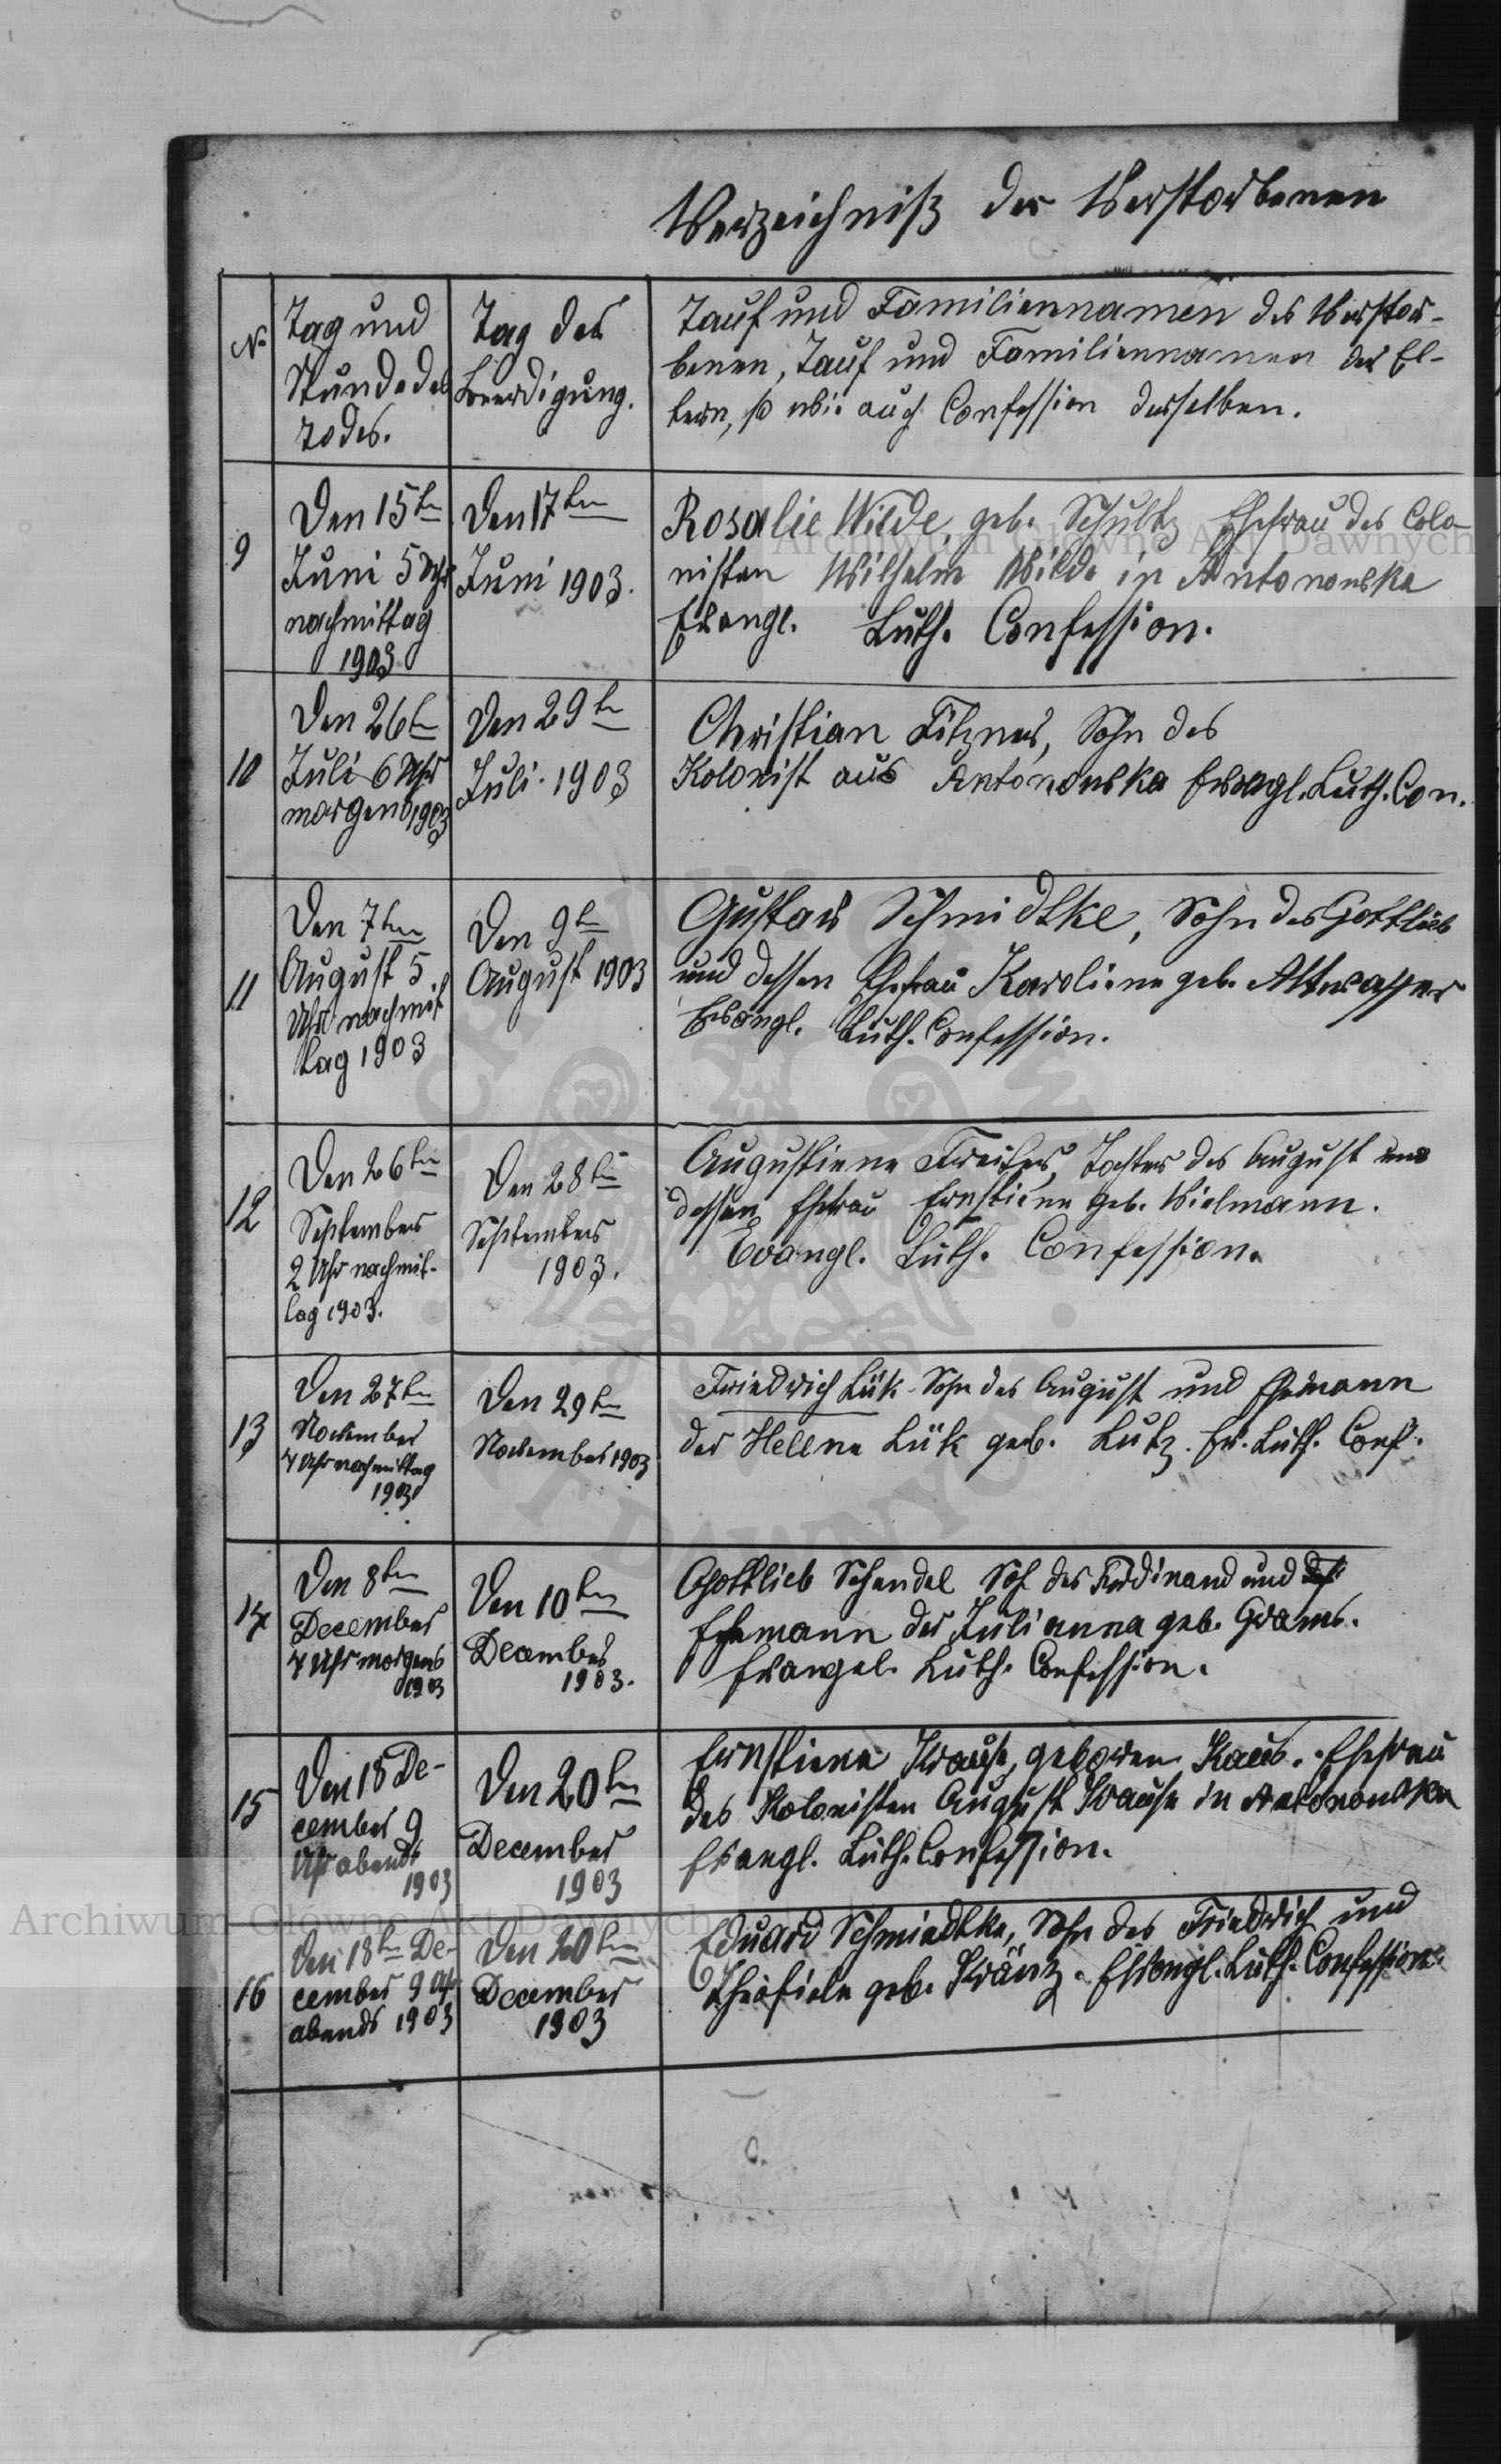 Verzeichniß der Verstorbenen
No
Tag und
Stunde des
Todes.
Tag der
Beerdigung.
Tauf und Familiennamen des Verstor-
benen, Tauf und Familiennamen der El-
tern, so wie auch Confession derselben.
9
Den 15ten
Juni 5 Uhr
nachmittag
1903
Den 17ten
Juni 1903.
Rosalie Wilde, geb. Schultz Ehefrau des Colo-
nisten Wilhelm Wilde in Antonowka
Evangl. Luth. Confession.
10
Den 26ten
Juli 6 Uhr
morgens 1903
Den 29ten
Juli. 1903
Christian Fitzner, Sohn des
Kolonist aus Antonowka Evangl. Luth. Con.
11
Den 7ten
August 5
Uhr nachmit
tag 1903
Den 9ten
August 1903
Gustav Schmidtke, Sohn des Gottlieb
und dessen Ehefrau Karoline geb. Altwasser
Evangl. Luth. Confession.
12
Den 26ten
September
2 Uhr nachmit-
tag 1903.
Den 28ten
September
1903.
Augustiene Freiter, Tochter des August und
dessen Ehefrau Ernstiene geb. Wielmann.
Evangl. Luth. Confession.
13
Den 27ten
November
4 Uhr nachmittag
1903
Den 29ten
November 1903
Friedrich Lük Sohn des August und Ehemann
der Hellene Lük geb. Lutz. Ev. Luth. Conf.
14
Den 8ten
December
4 Uhr morgens
1903
Den 10ten
December
1903.
Gottlieb Schendel Soh des Ferdinand und
Ehemann der Julianna geb. Grams.
Evangel. Luth. Confession.
15
Den 18 De-
cember 9
Uhr abends
1903
Den 20ten
December
1903
Ernstiene Krause, geboren Haus. Ehefrau
des Kolonisten August Krause in Antonowka
Evangl. Luth. Confession.
16
Den 18ten De-
cember 9 Uhr
abends 1903
Den 20ten
December
1903
Eduard Schmiedtke, Sohn des Friedrich und
Theofiele geb. Kränz. Evangl. Luth. Confession.
Archiwum Główne Akt Dawnych
Archiwum Główne Akt Dawnych